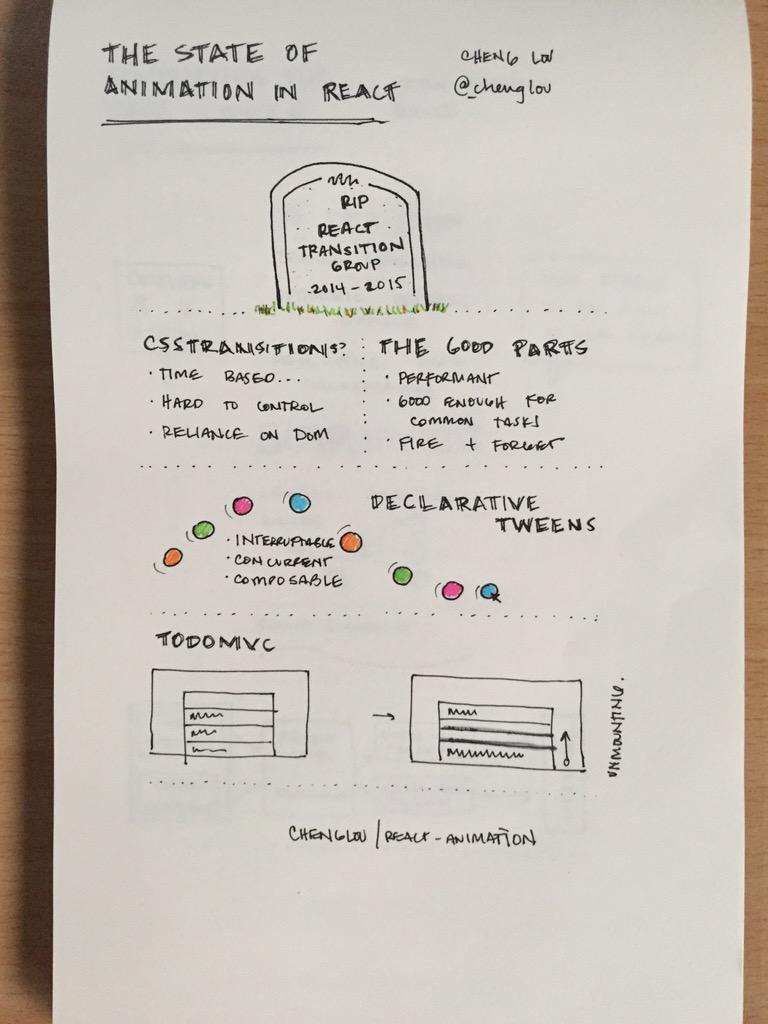 THE STATE OF
ANIMATION IN REACT
CHENG LOU
@_chenglou
RIP
REACT
TRANSITION
GROUP
2014-2015
CSSTRANSITIONS?
· TIME BASED...
· HARD TO CONTROL
· RELIANCE ON DOM
THE GOOD PARTS
· PERFORMANT
· GOOD ENOUGH FOR
COMMON TASKS
· FIRE + FORGET
DECLARATIVE
TWEENS
· INTERRUPTABLE
· CONCURRENT
· COMPOSABLE
TODOMVC
UNMOUNTING.
CHENGLOU/REACT-ANIMATION